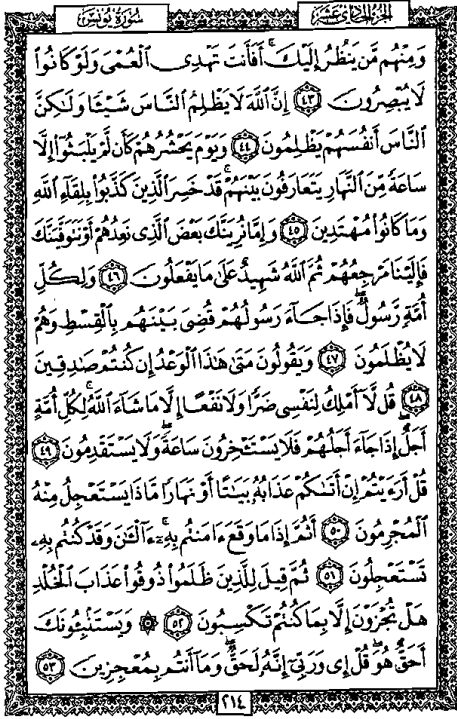 سورة يونس
الجزء الحادي عشر
وَمِنْهُم مَّن يَنظُرُ إِلَيْكَ ۚ أَفَأَنتَ تَهْدِي الْعُمْيَ وَلَوْ كَانُوا
لَا يُبْصِرُونَ ﴿٤٣﴾ إِنَّ اللَّهَ لَا يَظْلِمُ النَّاسَ شَيْئًا وَلَٰكِنَّ
النَّاسَ أَنفُسَهُمْ يَظْلِمُونَ ﴿٤٤﴾ وَيَوْمَ يَحْشُرُهُمْ كَأَن لَّمْ يَلْبَثُوا إِلَّا
سَاعَةً مِّنَ النَّهَارِ يَتَعَارَفُونَ بَيْنَهُمْ ۚ قَدْ خَسِرَ الَّذِينَ كَذَّبُوا بِلِقَاءِ اللَّهِ
وَمَا كَانُوا مُهْتَدِينَ ﴿٤٥﴾ وَإِمَّا نُرِيَنَّكَ بَعْضَ الَّذِي نَعِدُهُمْ أَوْ نَتَوَفَّيَنَّكَ
فَإِلَيْنَا مَرْجِعُهُمْ ثُمَّ اللَّهُ شَهِيدٌ عَلَىٰ مَا يَفْعَلُونَ ﴿٤٦﴾ وَلِكُلِّ
أُمَّةٍ رَّسُولٌ ۖ فَإِذَا جَاءَ رَسُولُهُمْ قُضِيَ بَيْنَهُم بِالْقِسْطِ وَهُمْ
لَا يُظْلَمُونَ ﴿٤٧﴾ وَيَقُولُونَ مَتَىٰ هَٰذَا الْوَعْدُ إِن كُنتُمْ صَادِقِينَ
﴿٤٨﴾ قُل لَّا أَمْلِكُ لِنَفْسِي ضَرًّا وَلَا نَفْعًا إِلَّا مَا شَاءَ اللَّهُ ۗ لِكُلِّ أُمَّةٍ
أَجَلٌ ۚ إِذَا جَاءَ أَجَلُهُمْ فَلَا يَسْتَأْخِرُونَ سَاعَةً ۖ وَلَا يَسْتَقْدِمُونَ ﴿٤٩﴾
قُلْ أَرَأَيْتُمْ إِنْ أَتَاكُمْ عَذَابُهُ بَيَاتًا أَوْ نَهَارًا مَّاذَا يَسْتَعْجِلُ مِنْهُ
الْمُجْرِمُونَ ﴿٥٠﴾ أَثُمَّ إِذَا مَا وَقَعَ ءَامَنتُم بِهِ ۚ ءَآلْـَٰنَ وَقَدْ كُنتُم بِهِ
تَسْتَعْجِلُونَ ﴿٥١﴾ ثُمَّ قِيلَ لِلَّذِينَ ظَلَمُوا ذُوقُوا عَذَابَ الْخُلْدِ
هَلْ تُجْزَوْنَ إِلَّا بِمَا كُنتُمْ تَكْسِبُونَ ﴿٥٢﴾ ۞ وَيَسْتَنبِئُونَكَ
أَحَقٌّ هُوَ ۖ قُلْ إِي وَرَبِّي إِنَّهُ لَحَقٌّ ۖ وَمَا أَنتُم بِمُعْجِزِينَ ﴿٥٣﴾
٢١٤